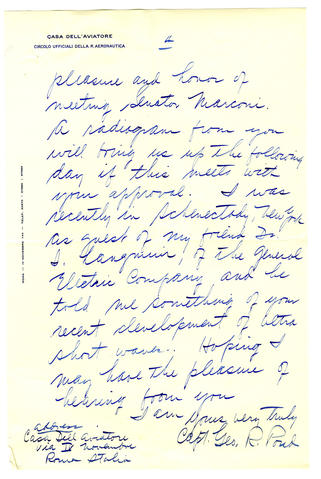 CASA DELL'AVIATORE
CIRCOLO UFFICIALI DELLA R. AERONAUTICA
4
pleasure and honor of
meeting Senator Marconi.
A radiogram from you
will bring us up the following
day if this meets with
your approval. I was
recently in Schenectady, New York
as guest of my friend Dr.
I. Langmuir, of the General
Electric Company and he
told me something of your
recent development of ultra
short waves.. Hoping I
may have the pleasure of
hearing from you
I am yours very truly
Capt. Geo. R. Pond
address
Casa Dell Aviatore
Via IV Novembre
Roma Italia